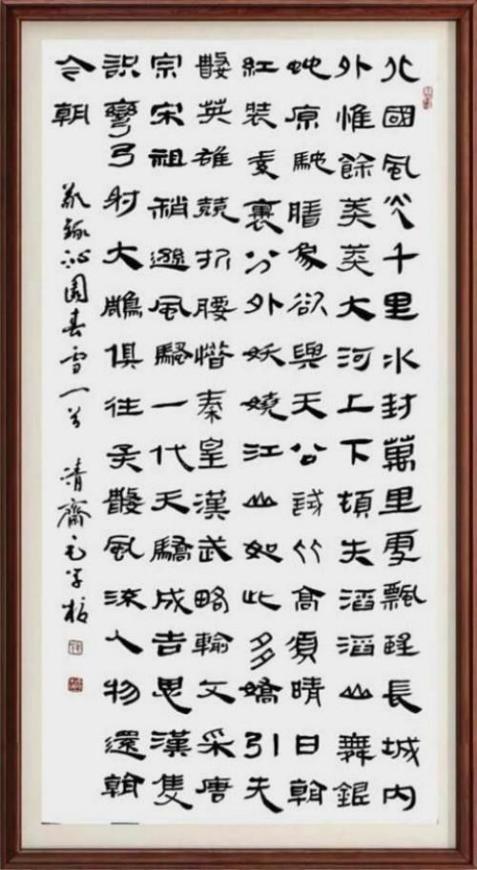 北國風光千里冰封萬里雪飄望長城内
外惟餘莽莽大河上下頓失滔滔山舞銀
蛇原馳臘象欲與天公試比高須晴日看
紅裝素裹分外妖嬈江山如此多嬌引无
數英雄競折腰惜秦皇漢武略輸文采唐
宗宋祖稍遜風騷一代天驕成吉思漢隻
識彎弓射大鵰俱往矣數風流人物還看
今朝 敬錄沁園春雪一首 清齋毛